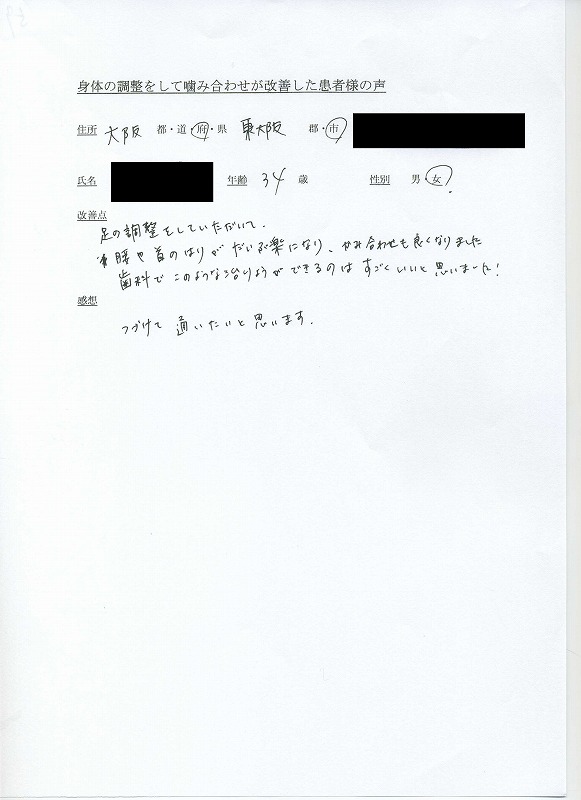 身体の調整をして噛み合わせが改善した患者様の声
住所 大阪 都・道・府・県 東大阪 郡・市
氏名 年齢 34 歳 性別 男・女
改善点
足の調整をしていただいて、
腰や首のはりがだいぶ楽になり、かみ合わせも良くなりました
歯科でこのような治りょうができるのはすごくいいと思いました!
感想
つづけて通いたいと思います.